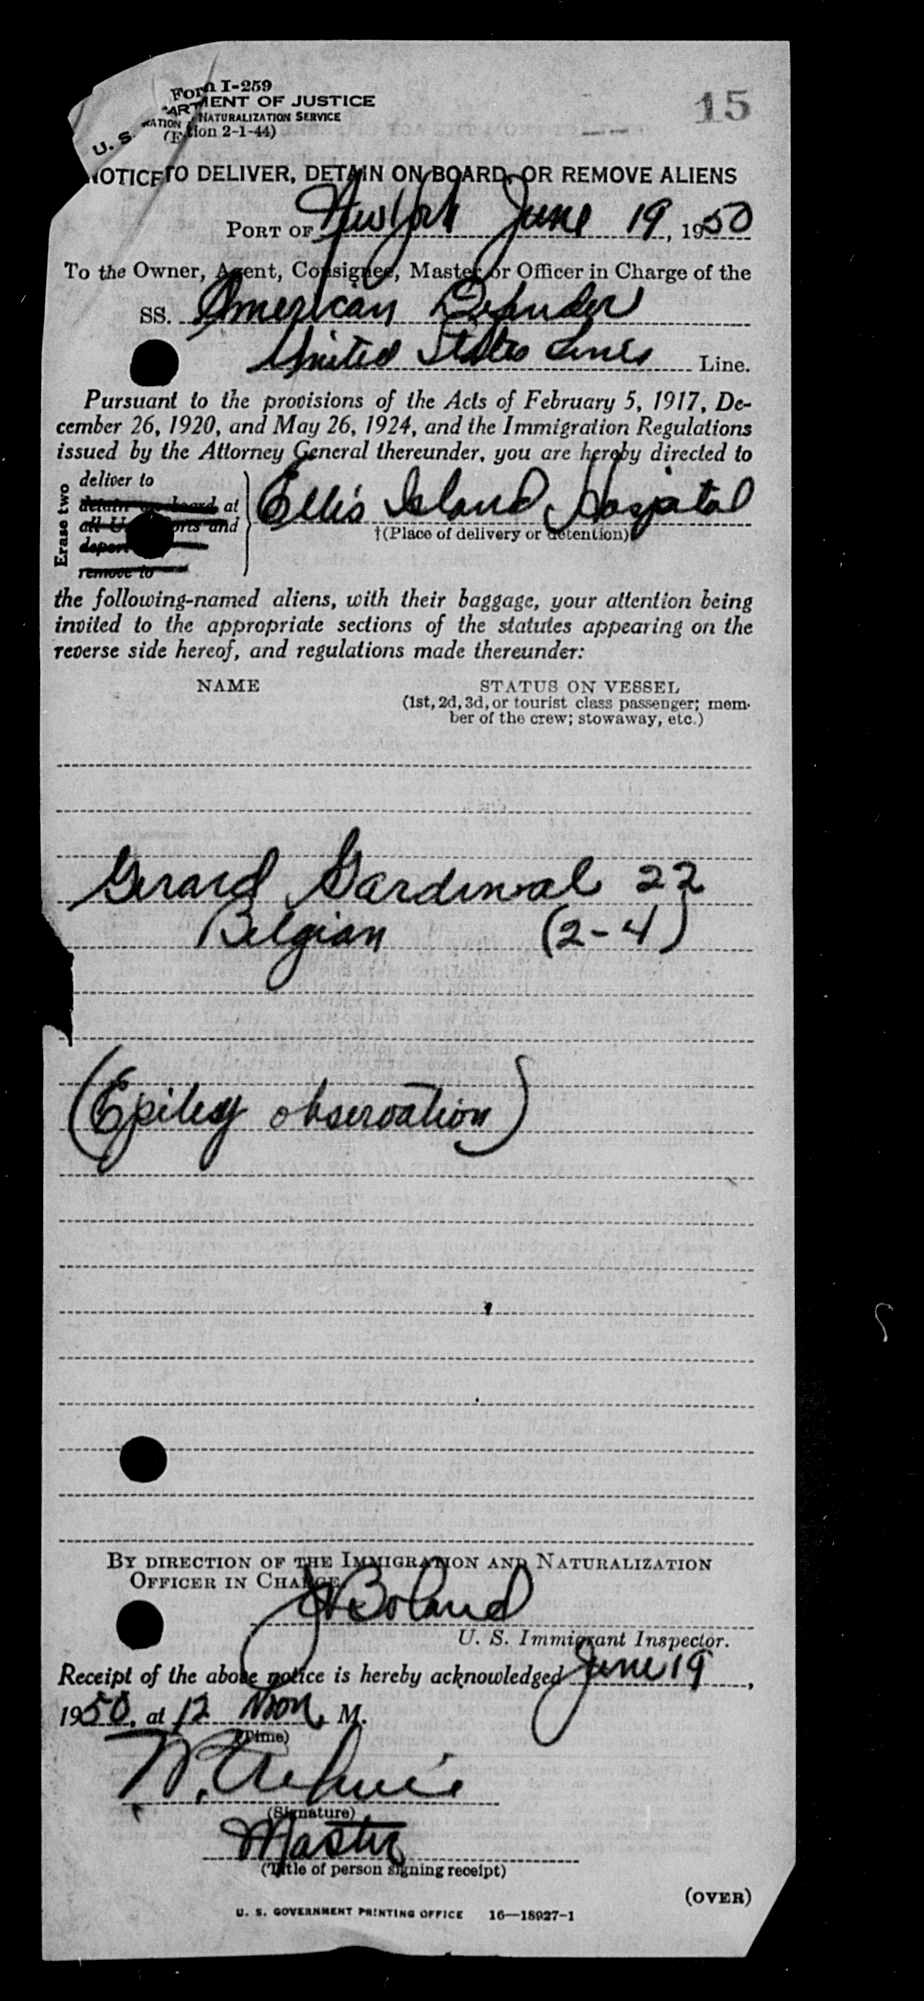 Form I-259
15
MENT OF JUSTICE
U. S. NATURALIZATION SERVICE
(Edition 2-1-44)
NOTICE TO DELIVER, DETAIN ON BOARD, OR REMOVE ALIENS
PORT OF New York June 19, 1950
To the Owner, Agent, Consignee, Master or Officer in Charge of the
SS. American Defender
United States Lines Line.
Pursuant to the provisions of the Acts of February 5, 1917, De-
cember 26, 1920, and May 26, 1924, and the Immigration Regulations
issued by the Attorney General thereunder, you are hereby directed to
Erase two
deliver to
detain on board at
all U ports and
depor
remove to
Ellis Island Hospital
†(Place of delivery or detention)
the following-named aliens, with their baggage, your attention being
invited to the appropriate sections of the statutes appearing on the
reverse side hereof, and regulations made thereunder:
NAME STATUS ON VESSEL
(1st, 2d, 3d, or tourist class passenger; mem-
ber of the crew; stowaway, etc.)
Gerard Gardinal 22
Belgian (2-4)
(Epilepsy observation)
BY DIRECTION OF THE IMMIGRATION AND NATURALIZATION
OFFICER IN CHARGE
Boland
U. S. Immigrant Inspector.
Receipt of the above notice is hereby acknowledged June 19,
1950, at 12 Noon M.
(Time)
W.
(Signature)
Master
(Title of person signing receipt)
(OVER)
U. S. GOVERNMENT PRINTING OFFICE 16—18927-1